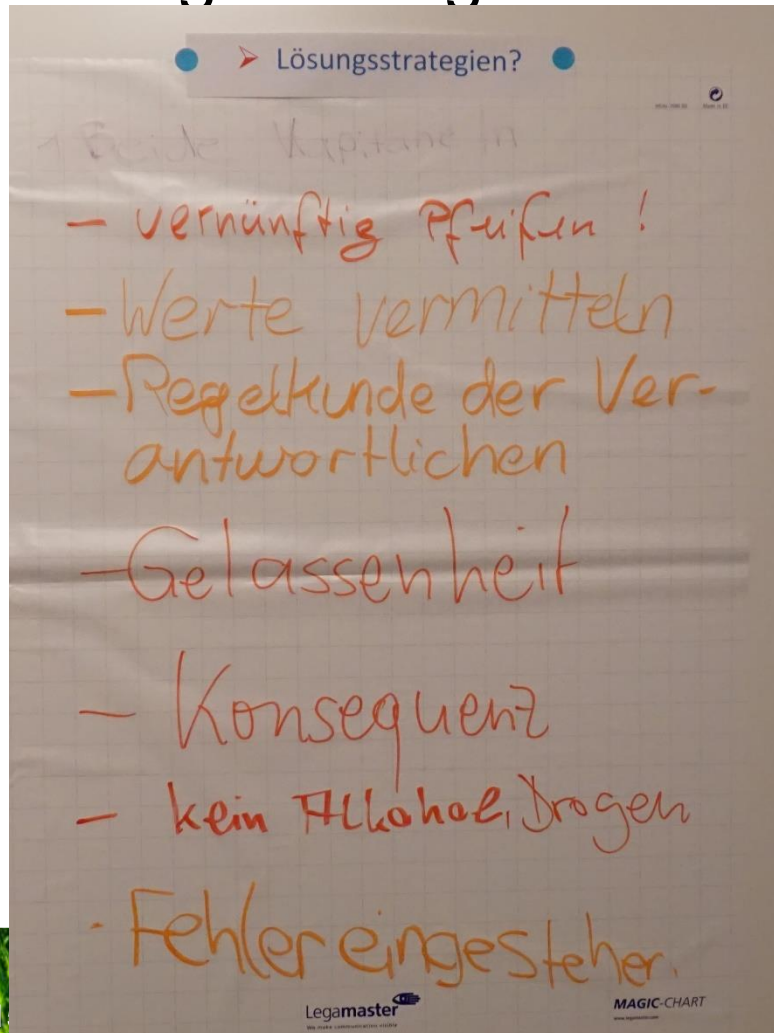 Lösungsstrategien?
Beide Kapitäne in
- vernünftig Pfeifen !
- Werte vermitteln
- Regelkunde der Ver-
antwortlichen
- Gelassenheit
- Konsequenz
- kein Alkohol, Drogen
- Fehler eingestehen.
Legamaster
MAGIC-CHART